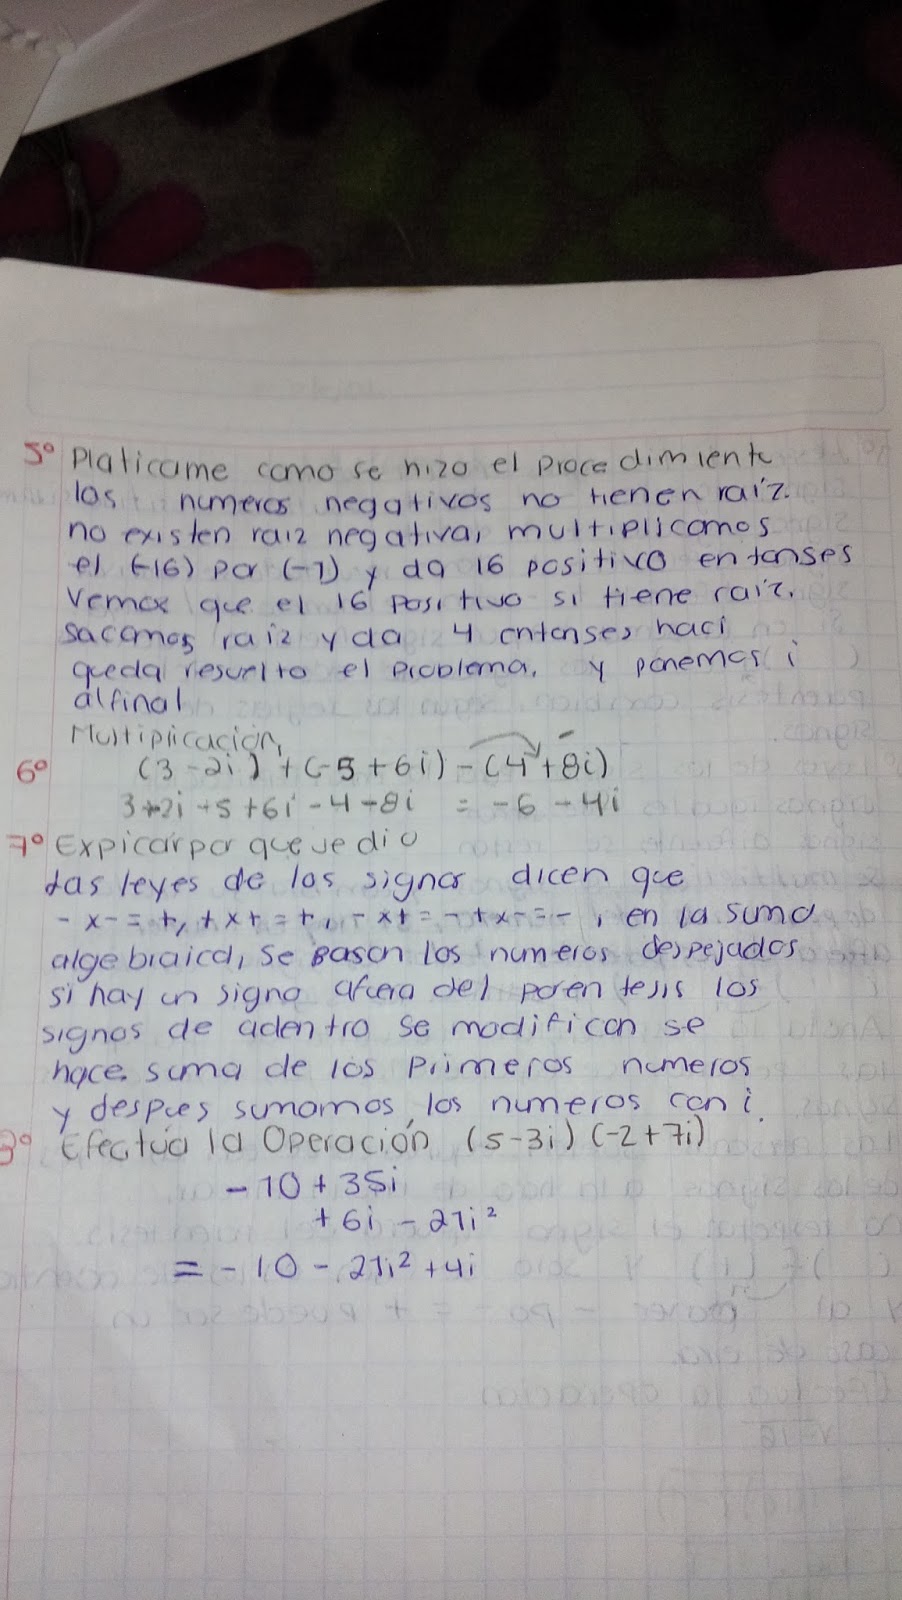 5º Platicame como se hizo el procedimiento
los numeros negativos no tienen raíz.
no existen raiz negativa, multiplicamos
el (-16) por (-1) y da 16 positivo entonses
vemox que el 16 positivo si tiene raiz.
sacamos raiz y da 4 entonses haci
queda resuelto el problema. y ponemos i
al final
Multiplicación,
6º (3-2i) + (-5+6i) - (4+8i)
3-2i-5+6i-4-8i = -6-4i
7º Expicar por que se dio
Las leyes de los signos dicen que
- x - = +, + x + = +, - x + = - + x - = - , en la suma
algebraica, se basan los numeros despejados
si hay un signo afuera del parentesis los
signos de adentro se modifican se
hace suma de los primeros numeros
y despues sumamos los numeros con i.
Efectúa la Operación (5-3i) (-2+7i)
-10+35i
+6i-21i²
= -10-21i²+4i